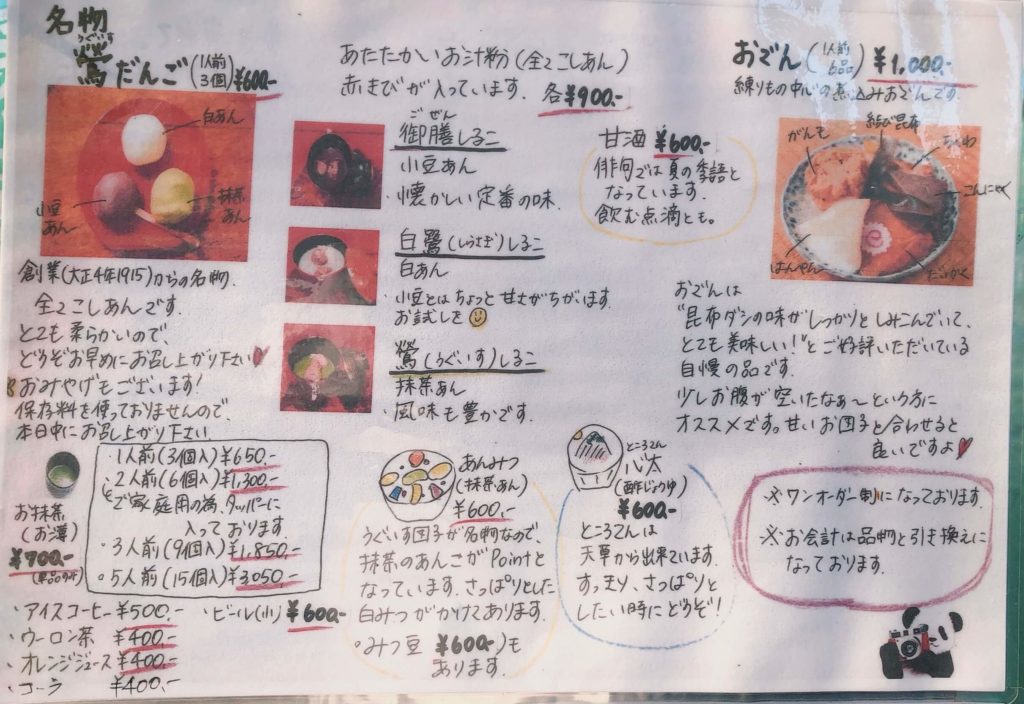 名物
うぐいす
鶯だんご(1人前3個)¥600.-
白あん
小豆あん
抹茶あん
創業(大正4年1915)からの名物.
全てこしあんです.
とても柔らかいので、
どうぞお早めにお召し上がり下さい
おみやげもございます!
保存料を使っておりませんので、
本日中にお召し上がり下さい.
・1人前(3個入)¥650.-
・2人前(6個入)¥1,300.-
ご家庭用の為、タッパーに
入っております
・3人前(9個入)¥1,850.-
・5人前(15個入)¥3,050.-
お抹茶
(お薄)
¥700.-
・アイスコーヒー ¥500.-
・ビール(小) ¥600.-
・ウーロン茶 ¥400.-
・オレンジジュース ¥400.-
・コーラ ¥400.-
あたたかいお汁粉(全てこしあん)
赤きびが入っています. 各¥900.-
ごぜん
御膳しるこ
小豆あん
・懐かしい定番の味.
白鷺(しらさぎ)しるこ
白あん
・小豆とはちょっと甘さがちがいます.
お試しを
鶯(うぐいす)しるこ
抹茶あん
・風味も豊かです.
甘酒 ¥600.-
俳句では夏の季語と
なっています.
飲む点滴とも.
あんみつ
(抹茶あん)
¥600.-
うぐいす団子が名物なので、
抹茶のあんこがPointと
なっています.さっぱりとした
白みつがかけてあります.
・みつ豆 ¥600.-も
あります.
ところてん
心太
(酢じょうゆ)
¥600.-
ところてんは
天草から出来ています.
すっきり、さっぱりと
したい時にどうぞ!
おでん(1人前6品)¥1,000.-
練りもの中心の煮込みおでんです.
がんも
結び昆布
ちくわ
こんにゃく
はんぺん
おでんは
"昆布ダシの味がしっかりとしみこんでいて、
とても美味しい!"とご好評いただいている
自慢の品です.
少しお腹が空いたなぁ〜という方に
オススメですっ.甘いお団子と合わせると
良いですよ
※ワンオーダー制になっております.
※お会計は品物と引き換えに
なっております.